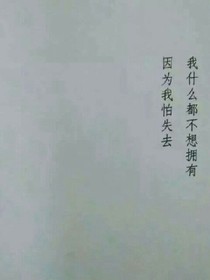 我什么都不想拥有
因为我怕失去